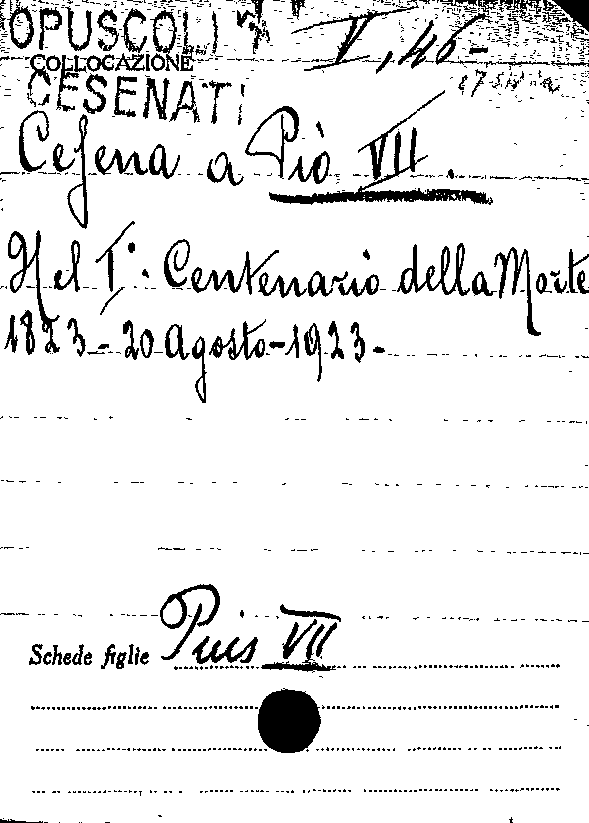 OPUSCOLI V, 46-
COLLOCAZIONE
CESENATI
Cesena a Pio VII.
Nel I°. Centenario della Morte
1823 - 20 Agosto - 1923 -
Schede figlie Pius VII